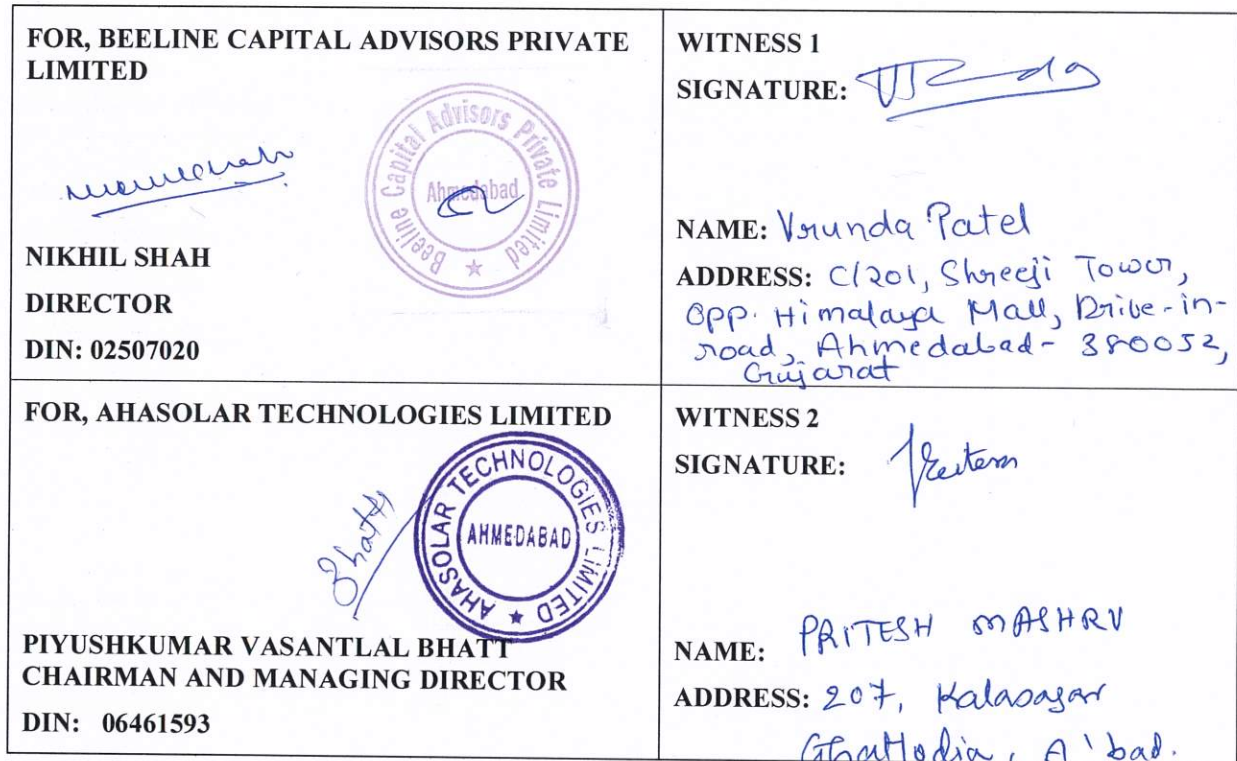 FOR, BEELINE CAPITAL ADVISORS PRIVATE
LIMITED
Beeline Capital Advisors Private Limited ★
Ahmedabad
NIKHIL SHAH
DIRECTOR
DIN: 02507020
WITNESS 1
SIGNATURE:
NAME: Vrunda Patel
ADDRESS: C/201, Shreeji Tower,
Opp. Himalaya Mall, Drive-in-
road, Ahmedabad- 380052,
Gujarat
FOR, AHASOLAR TECHNOLOGIES LIMITED
AHASOLAR TECHNOLOGIES LIMITED ★
AHMEDABAD
Bhatt
PIYUSHKUMAR VASANTLAL BHATT
CHAIRMAN AND MANAGING DIRECTOR
DIN: 06461593
WITNESS 2
SIGNATURE:
NAME: PRITESH MASHRU
ADDRESS: 207, Kalasagar
Ghatlodia, A'bad.